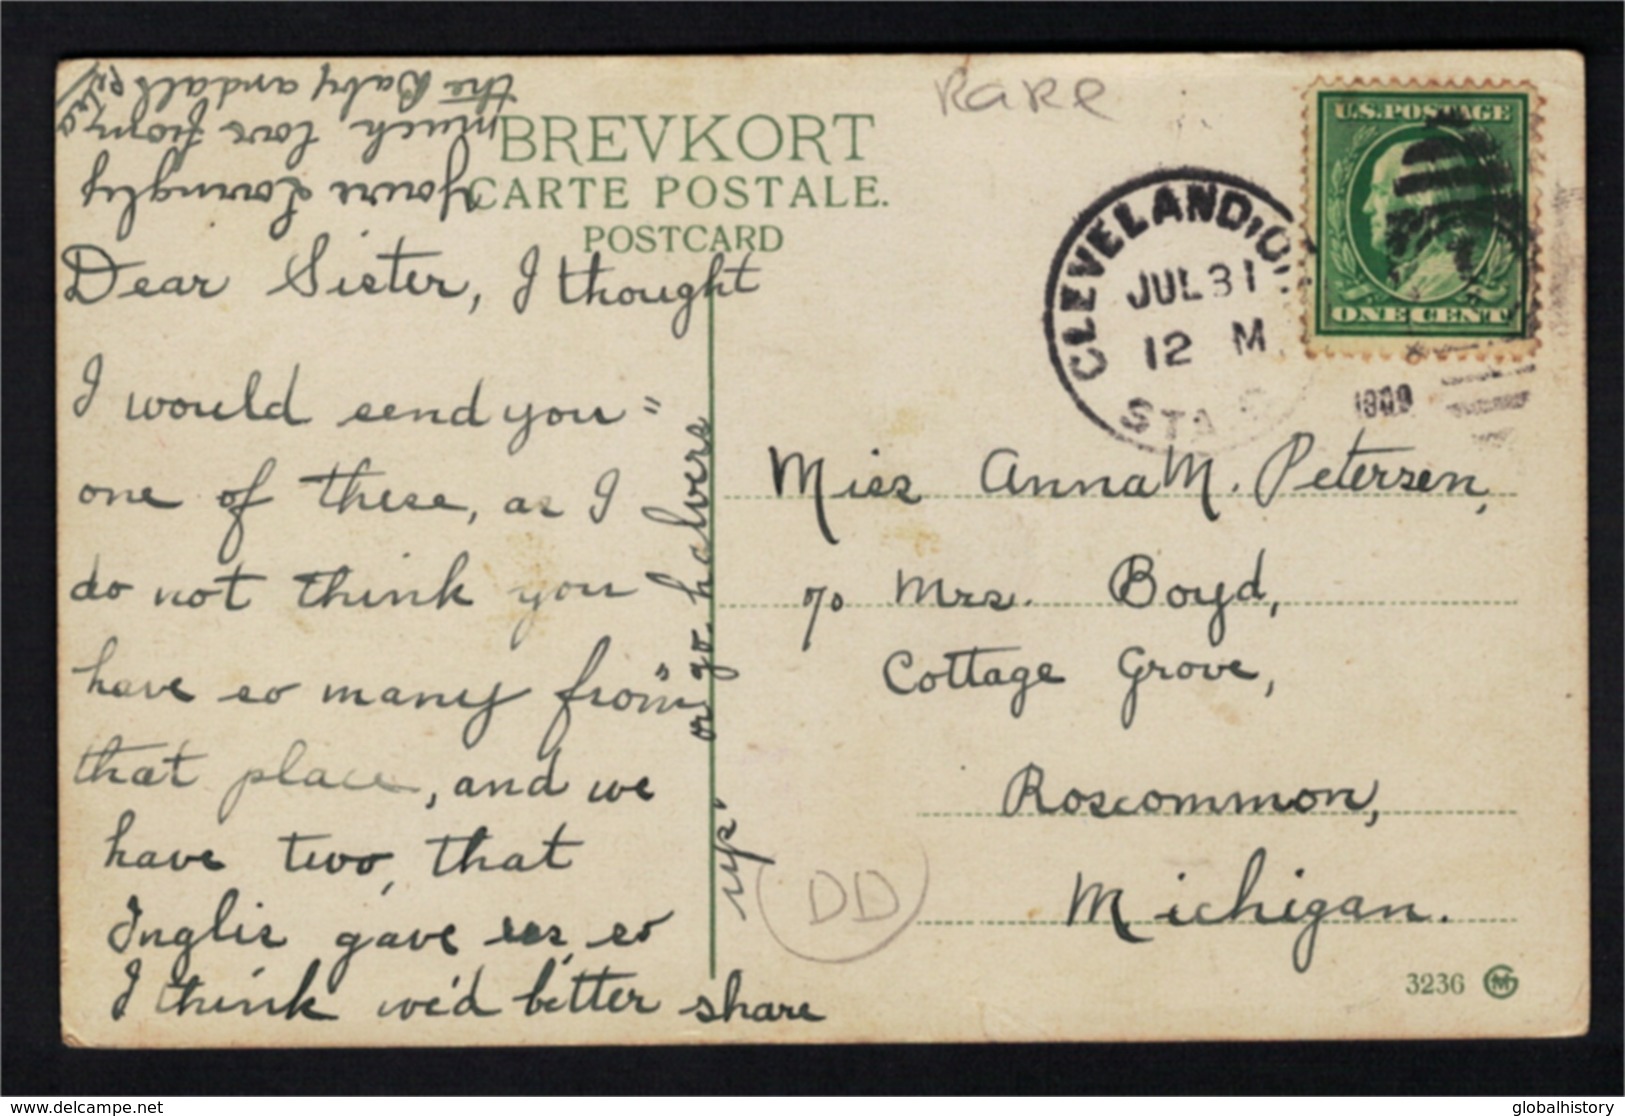 RARE
BREVKORT
CARTE POSTALE.
POSTCARD
U.S. POSTAGE
ONE CENT
CLEVELAND, O.
JUL 31
12 M
STA
1909
Dear Sister, I thought
I would send you =
one of these, as I
do not think you
have so many from
that place, and we
have two, that
Inglis gave us, so
I think we'd better share
up"
or go halvers
Yours Lovingly
much love from
the Baby and all
Miss Anna M. Petersen,
c/o Mrs. Boyd,
Cottage Grove,
Roscommon,
Michigan.
DD
3236
delcampe.net
globalhistory